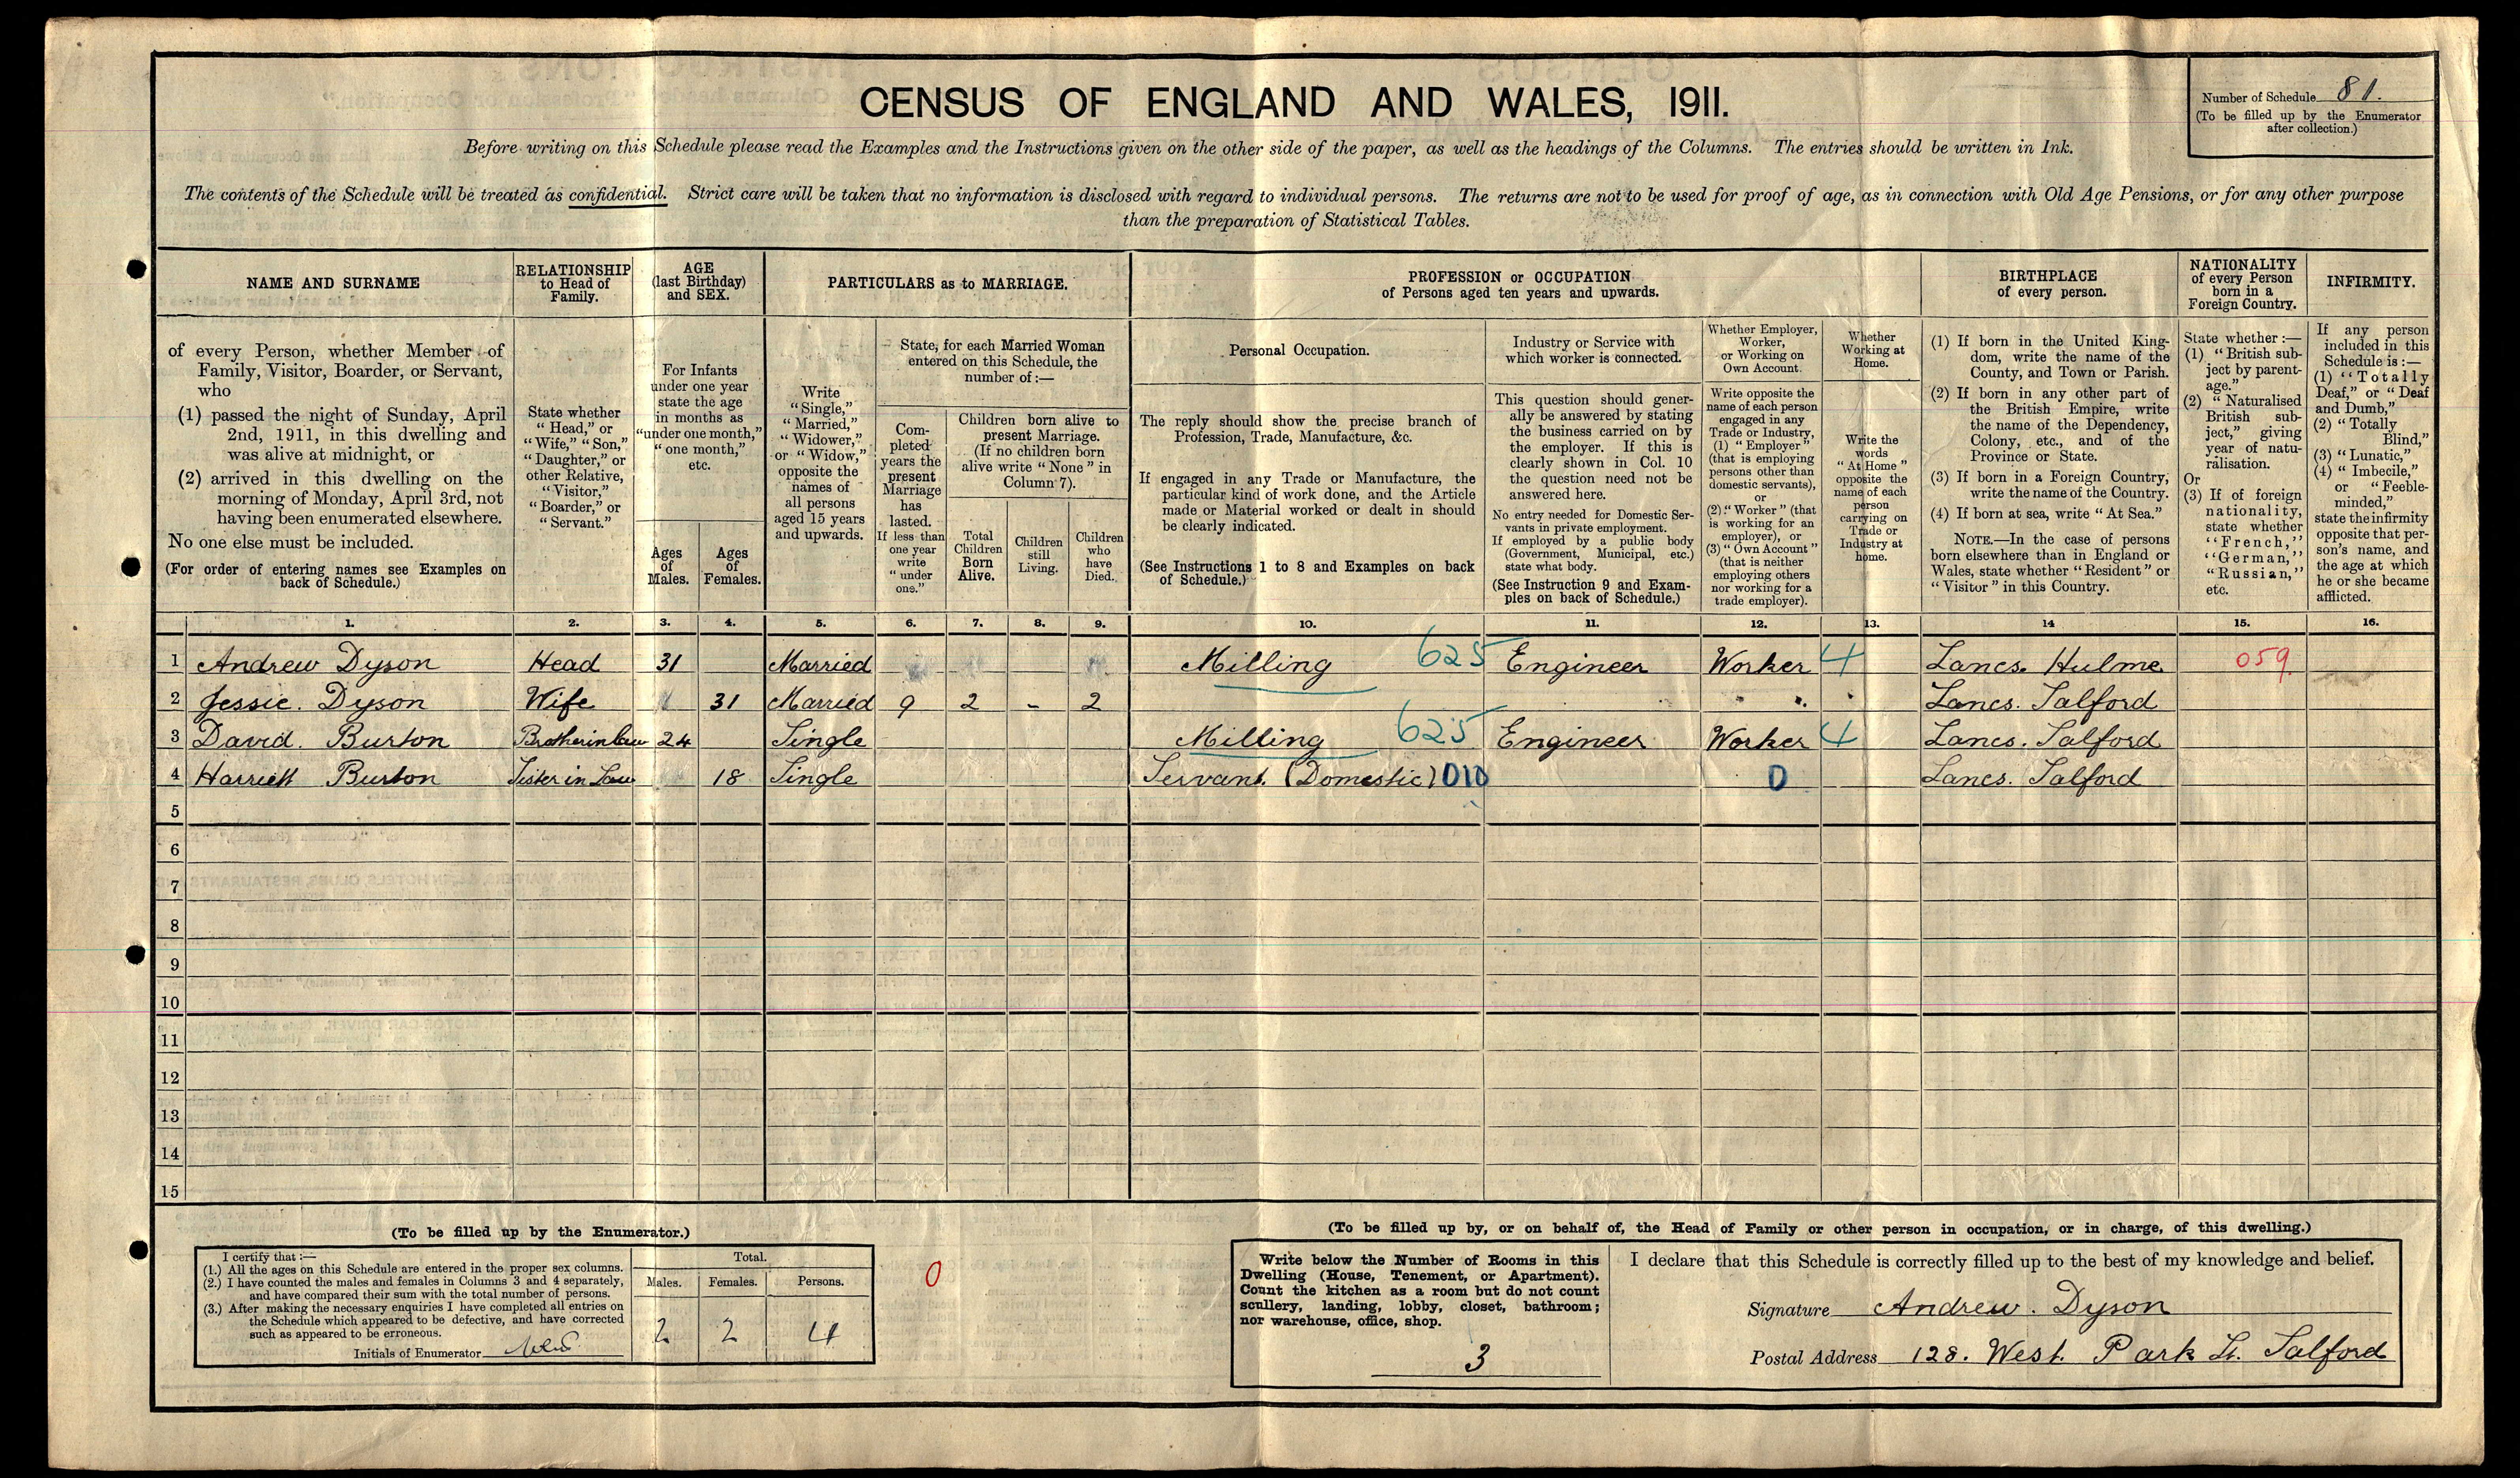 CENSUS OF ENGLAND AND WALES, 1911.
Number of Schedule 81.
(To be filled up by the Enumerator
after collection.)
Before writing on this Schedule please read the Examples and the Instructions given on the other side of the paper, as well as the headings of the Columns. The entries should be written in Ink.
The contents of the Schedule will be treated as confidential. Strict care will be taken that no information is disclosed with regard to individual persons. The returns are not to be used for proof of age, as in connection with Old Age Pensions, or for any other purpose
than the preparation of Statistical Tables.
NAME AND SURNAME
of every Person, whether Member of
Family, Visitor, Boarder, or Servant,
who
(1) passed the night of Sunday, April
2nd, 1911, in this dwelling and
was alive at midnight, or
(2) arrived in this dwelling on the
morning of Monday, April 3rd, not
having been enumerated elsewhere.
No one else must be included.
(For order of entering names see Examples on
back of Schedule.)
RELATIONSHIP
to Head of
Family.
State whether
"Head," or
"Wife," "Son,"
"Daughter," or
other Relative,
"Visitor,"
"Boarder," or
"Servant."
AGE
(last Birthday)
and SEX.
For Infants
under one year
state the age
in months as
"under one month,"
"one month,"
etc.
Ages
of
Males.
Ages
of
Females.
PARTICULARS as to MARRIAGE.
Write
"Single,"
"Married,"
"Widower,"
or "Widow,"
opposite the
names of
all persons
aged 15 years
and upwards.
State, for each Married Woman
entered on this Schedule, the
number of :—
Com-
pleted
years the
present
Marriage
has
lasted.
If less than
one year
write
"under
one."
Children born alive to
present Marriage.
(If no children born
alive write "None" in
Column 7).
Total
Children
Born
Alive.
Children
still
Living.
Children
who
have
Died.
PROFESSION or OCCUPATION
of Persons aged ten years and upwards.
Personal Occupation.
The reply should show the precise branch of
Profession, Trade, Manufacture, &c.
If engaged in any Trade or Manufacture, the
particular kind of work done, and the Article
made or Material worked or dealt in should
be clearly indicated.
(See Instructions 1 to 8 and Examples on back
of Schedule.)
Industry or Service with
which worker is connected.
This question should gener-
ally be answered by stating
the business carried on by
the employer. If this is
clearly shown in Col. 10
the question need not be
answered here.
No entry needed for Domestic Ser-
vants in private employment.
If employed by a public body
(Government, Municipal, etc.)
state what body.
(See Instruction 9 and Exam-
ples on back of Schedule.)
Whether Employer,
Worker,
or Working on
Own Account.
Write opposite the
name of each person
engaged in any
Trade or Industry,
(1) "Employer"
(that is employing
persons other than
domestic servants),
or
(2) "Worker" (that
is working for an
employer), or
(3) "Own Account"
(that is neither
employing others
nor working for a
trade employer).
Whether
Working at
Home.
Write the
words
"At Home"
opposite the
name of each
person
carrying on
Trade or
Industry at
home.
BIRTHPLACE
of every person.
(1) If born in the United King-
dom, write the name of the
County, and Town or Parish.
(2) If born in any other part of
the British Empire, write
the name of the Dependency,
Colony, etc., and of the
Province or State.
(3) If born in a Foreign Country,
write the name of the Country.
(4) If born at sea, write "At Sea."
NOTE.—In the case of persons
born elsewhere than in England or
Wales, state whether "Resident" or
"Visitor" in this Country.
NATIONALITY
of every Person
born in a
Foreign Country.
State whether :—
(1) "British sub-
ject by parent-
age."
(2) "Naturalised
British sub-
ject," giving
year of natu-
ralisation.
Or
(3) If of foreign
nationality,
state whether
"French,"
"German,"
"Russian,"
etc.
INFIRMITY.
If any person
included in this
Schedule is :—
(1) "Totally
Deaf," or "Deaf
and Dumb,"
(2) "Totally
Blind,"
(3) "Lunatic,"
(4) "Imbecile,"
or "Feeble-
minded,"
state the infirmity
opposite that per-
son's name, and
the age at which
he or she became
afflicted.
1. 2. 3. 4. 5. 6. 7. 8. 9. 10. 11. 12. 13. 14 15. 16.
1 Andrew Dyson Head 31 Married Milling 625 Engineer Worker 4 Lancs. Hulme 059
2 Jessie. Dyson Wife 31 Married 9 2 - 2 Lancs. Salford
3 David. Burton Brother in law 24 Single Milling 625 Engineer Worker 4 Lancs. Salford
4 Harriett Burton Sister in Law 18 Single Servant. (Domestic) 010 0 Lancs. Salford
5
6
7
8
9
10
11
12
13
14
15
(To be filled up by the Enumerator.)
I certify that :—
(1.) All the ages on this Schedule are entered in the proper sex columns.
(2.) I have counted the males and females in Columns 3 and 4 separately,
and have compared their sum with the total number of persons.
(3.) After making the necessary enquiries I have completed all entries on
the Schedule which appeared to be defective, and have corrected
such as appeared to be erroneous.
Initials of Enumerator
Total.
Males. Females. Persons.
2 2 4
0
(To be filled up by, or on behalf of, the Head of Family or other person in occupation, or in charge, of this dwelling.)
Write below the Number of Rooms in this
Dwelling (House, Tenement, or Apartment).
Count the kitchen as a room but do not count
scullery, landing, lobby, closet, bathroom;
nor warehouse, office, shop.
3
I declare that this Schedule is correctly filled up to the best of my knowledge and belief.
Signature Andrew. Dyson
Postal Address 128. West. Park St. Salford